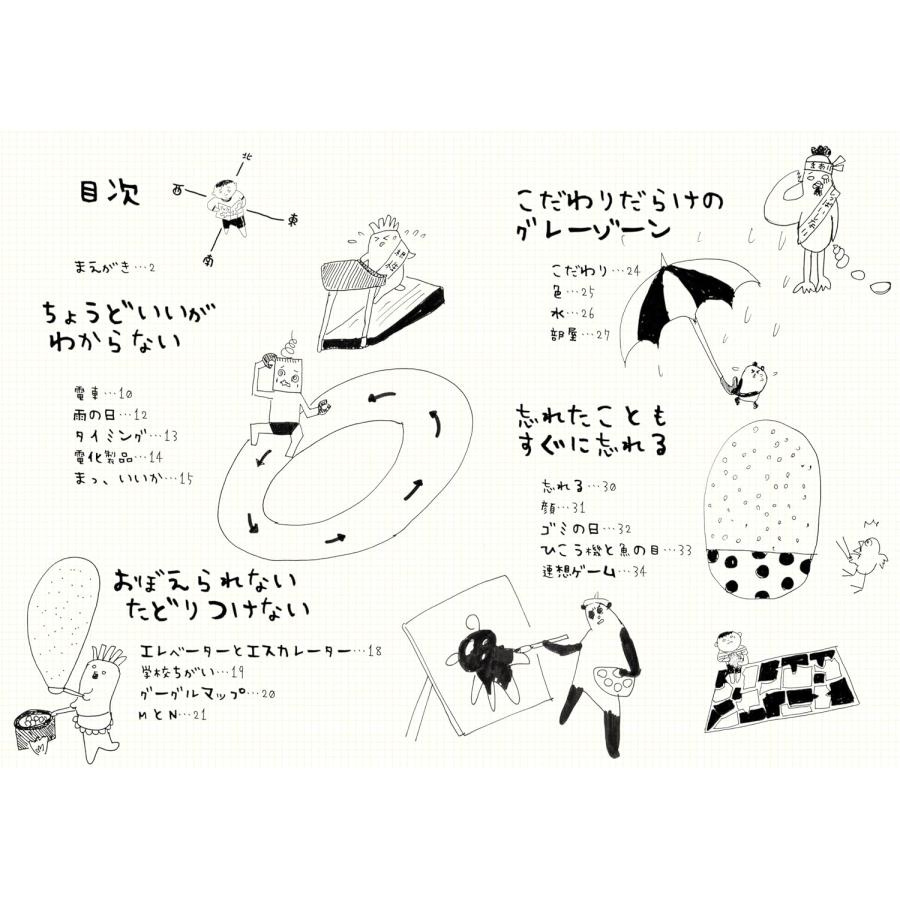 目次
北
西
東
南
まえがき…2
ちょうどいいが
わからない
電車…10
雨の日…12
タイミング…13
電化製品…14
まっ、いいか…15
おぼえられない
たどりつけない
エレベーターとエスカレーター…18
学校ちがい…19
グーグルマップ…20
MとN…21
こだわりだらけの
グレーゾーン
こだわり…24
色…25
水…26
部屋…27
忘れたことも
すぐに忘れる
忘れる…30
顔…31
ゴミの日…32
ひこう機と魚の目…33
連想ゲーム…34